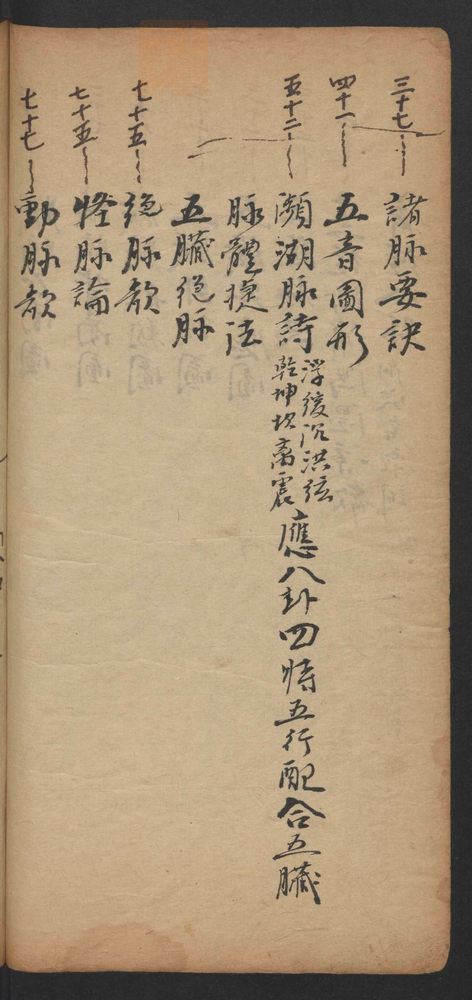 三十七 諸脉要訣
四十一 五音圖形
五十二 瀕湖脉詩 浮緩沉洪弦 乾坤坎离震 應八卦四時五行配合五臟
脉體捷法
五臟絶脉
七十五 絶脉歌
七十五 怪脉論
七十七 動脉歌